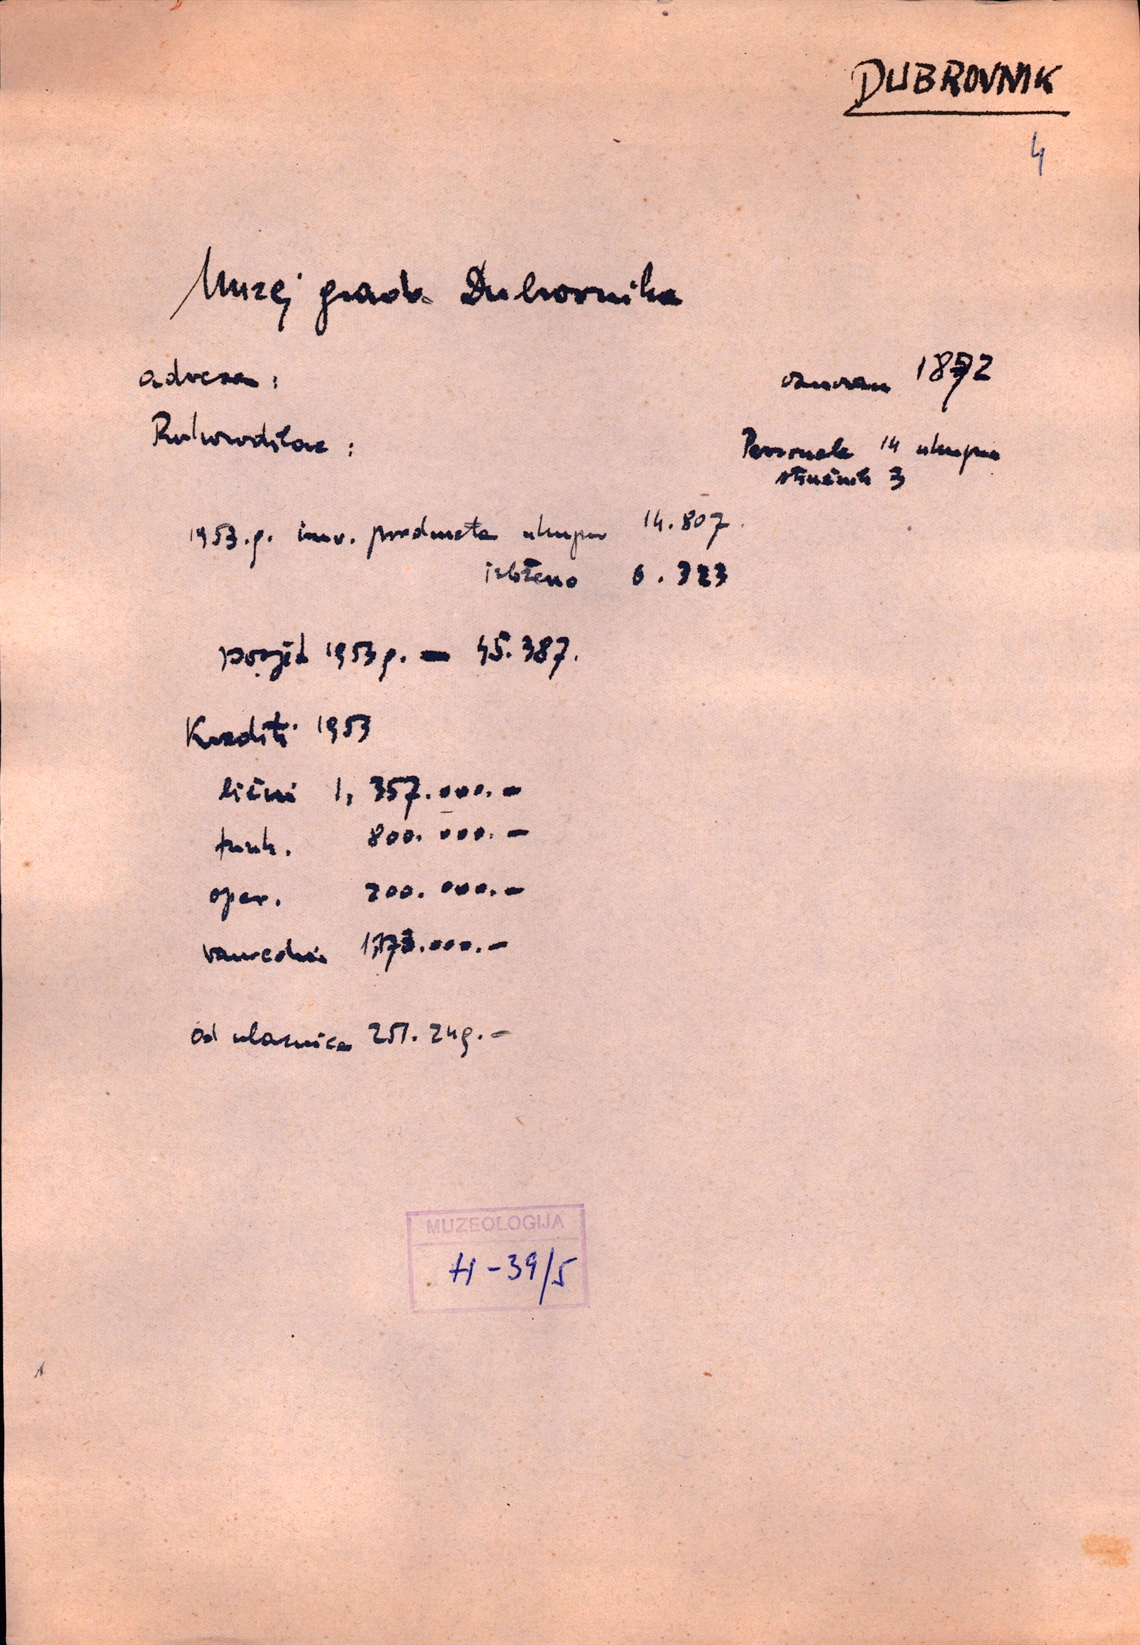 DUBROVNIK
4
Muzej grada Dubrovnika
adresa :
osnovan 1872
Rukovodilac :
Personala 14 ukupno
stručnih 3
1953.g. inv. predmeta ukupno 14.807.
izloženo 6.323
posjet 1953 g. — 45.387.
Krediti 1953
lični 1,357.000.—
funk. 800.000.—
oper. 200.000.—
vanredni 000.—
od ulaznica 251.249.—
MUZEOLOGIJA
H-39/5